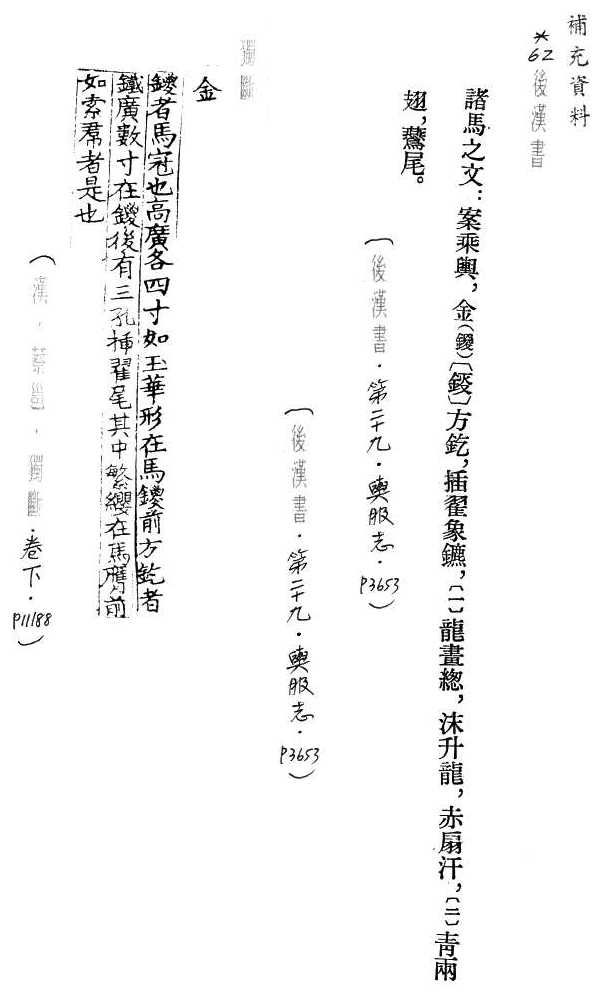 補充資料
*62後漢書
諸馬之文：案乘輿，金（鍐）〔錽〕方釳，插翟象鑣，〔一〕龍畫總，沫升龍，赤扇汗，〔二〕青兩
翅，鷰尾。
（後漢書．第二十九．輿服志．P3653）
（後漢書．第二十九．輿服志．P3653）
獨斷
金
鍐者馬冠也高廣各四寸如玉華形在馬鍐前方釳者
鐵廣數寸在鍐後有三孔插翟尾其中繁纓在馬膺前
如索帬者是也
（漢．蔡邕．獨斷．卷下．P11/88）